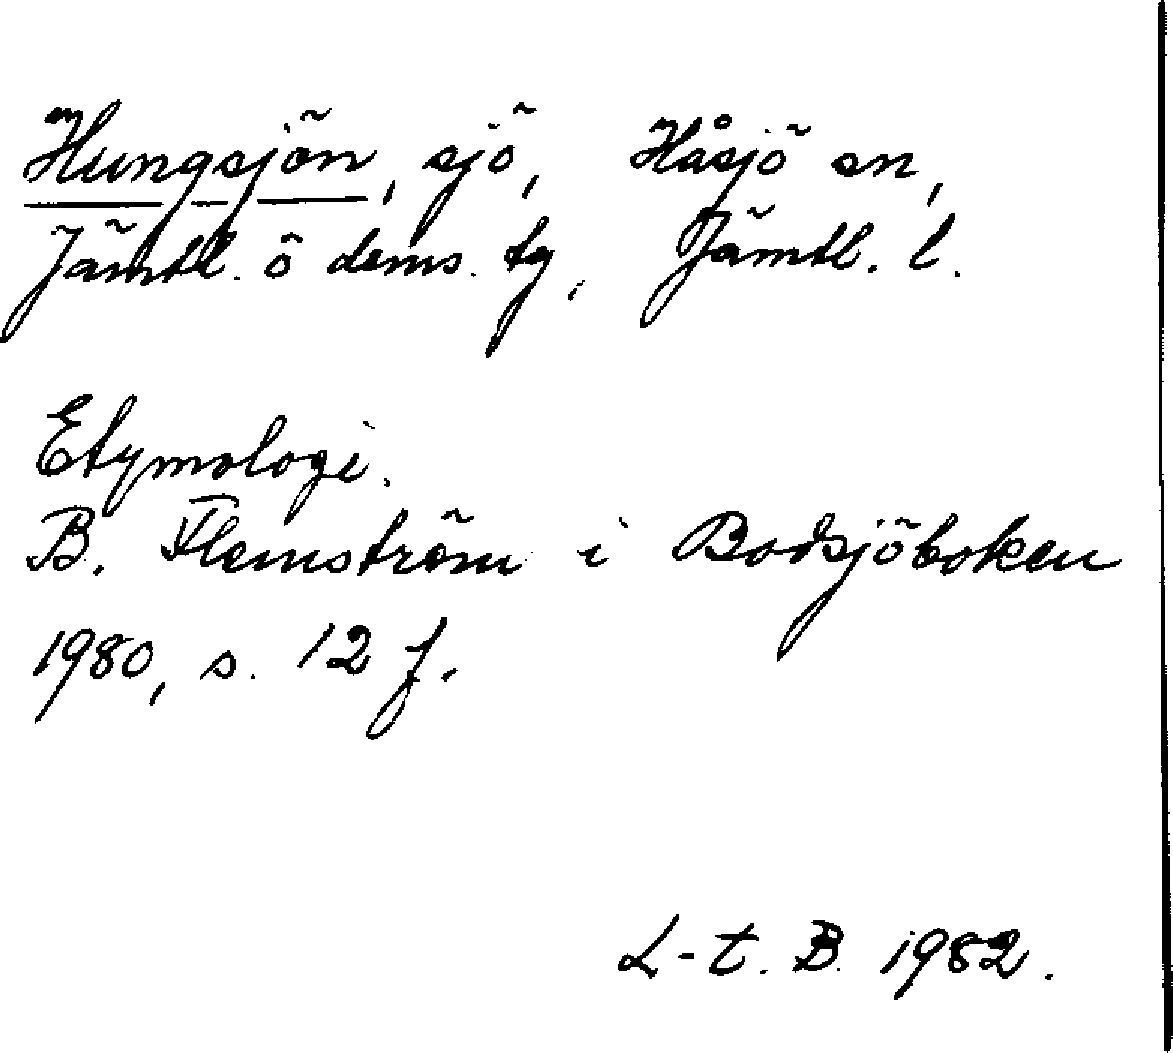 Hungsjön, sjö, Håsjö sn,
Jämtl. ö doms. tg, Jämtl. l.
Etymologi.
B. Flemström i Bodsjöboken
1980, s. 12 f.
L-t. B. 1982.